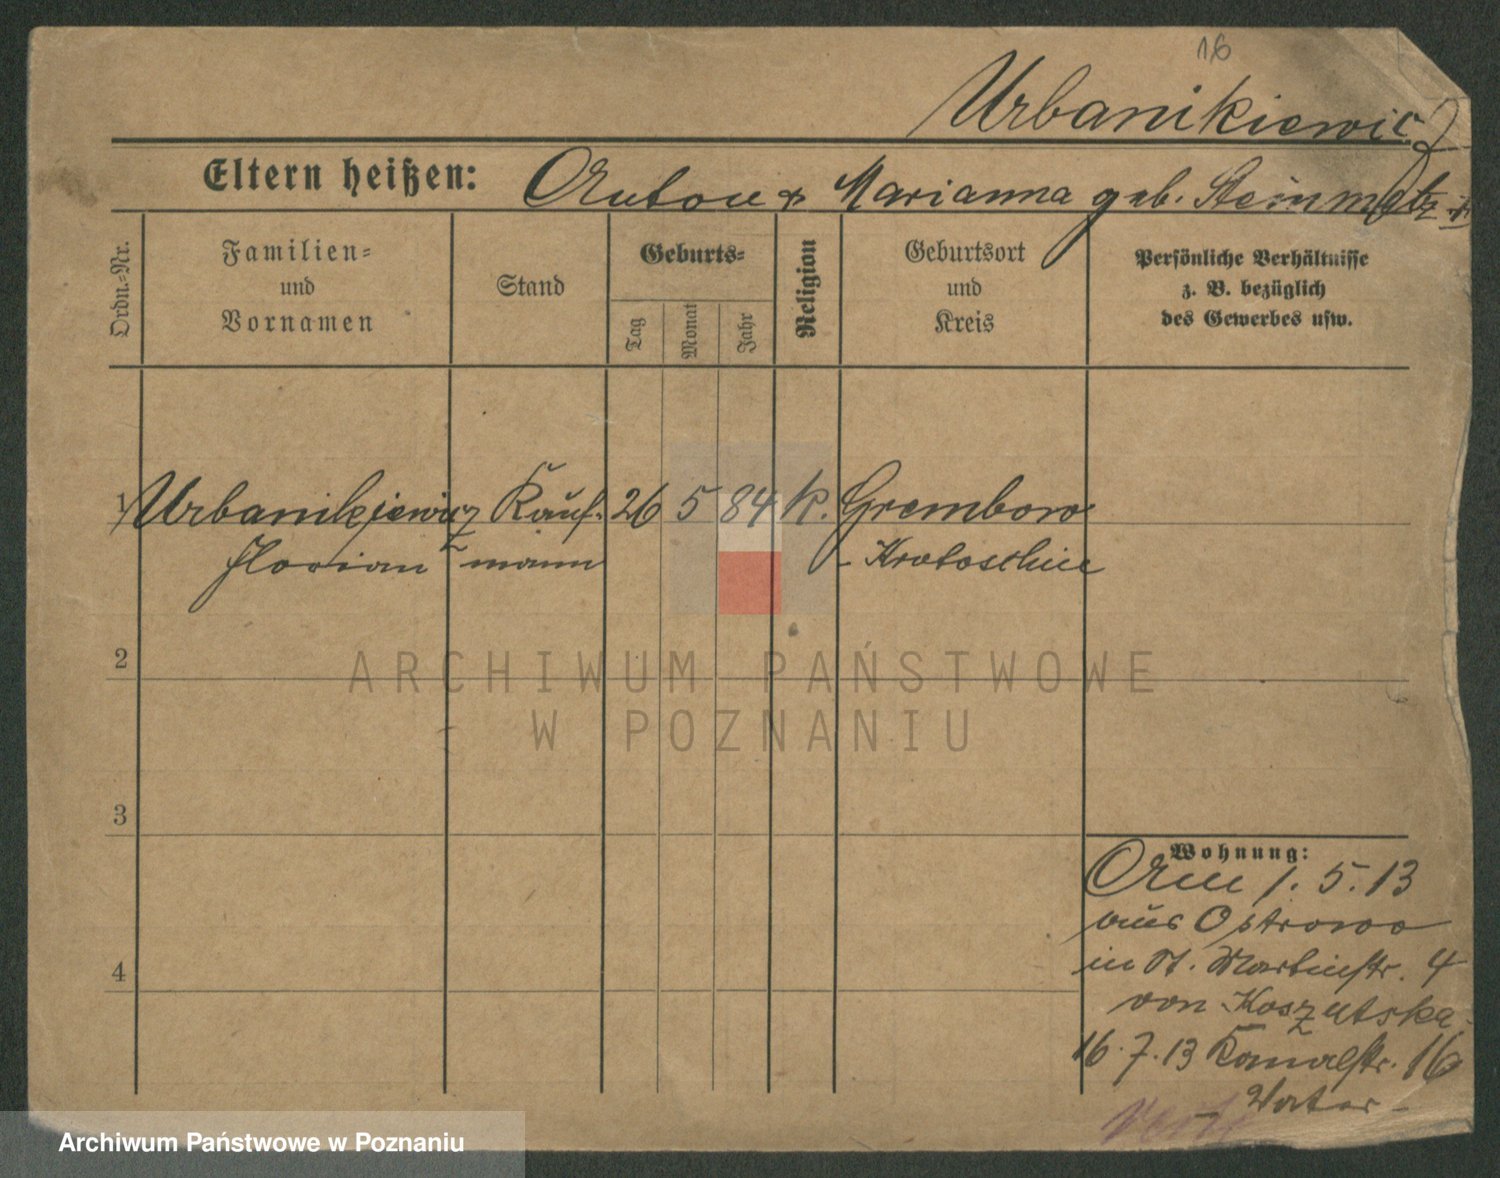 16
Urbanikiewicz
Eltern heißen: Anton & Marianna geb. Steinmetz
Ordn.-Nr.
Familien-
und
Vornamen
Stand
Geburts-
Tag
Monat
Jahr
Religion
Geburtsort
und
Kreis
Persönliche Verhältnisse
z. B. bezüglich
des Gewerbes usw.
1 Urbanikiewicz Kauf- 26 5 84 K. Grembow
Florian mann - Krotoschin
2
ARCHIWUM PAŃSTWOWE
W POZNANIU
3
Wohnung:
Am 1. 5. 13
aus Ostrowo
in St. Martinstr. 4
von Koszutska
16. 7. 13 Kanalstr. 16
4
- Vater -
Archiwum Państwowe w Poznaniu